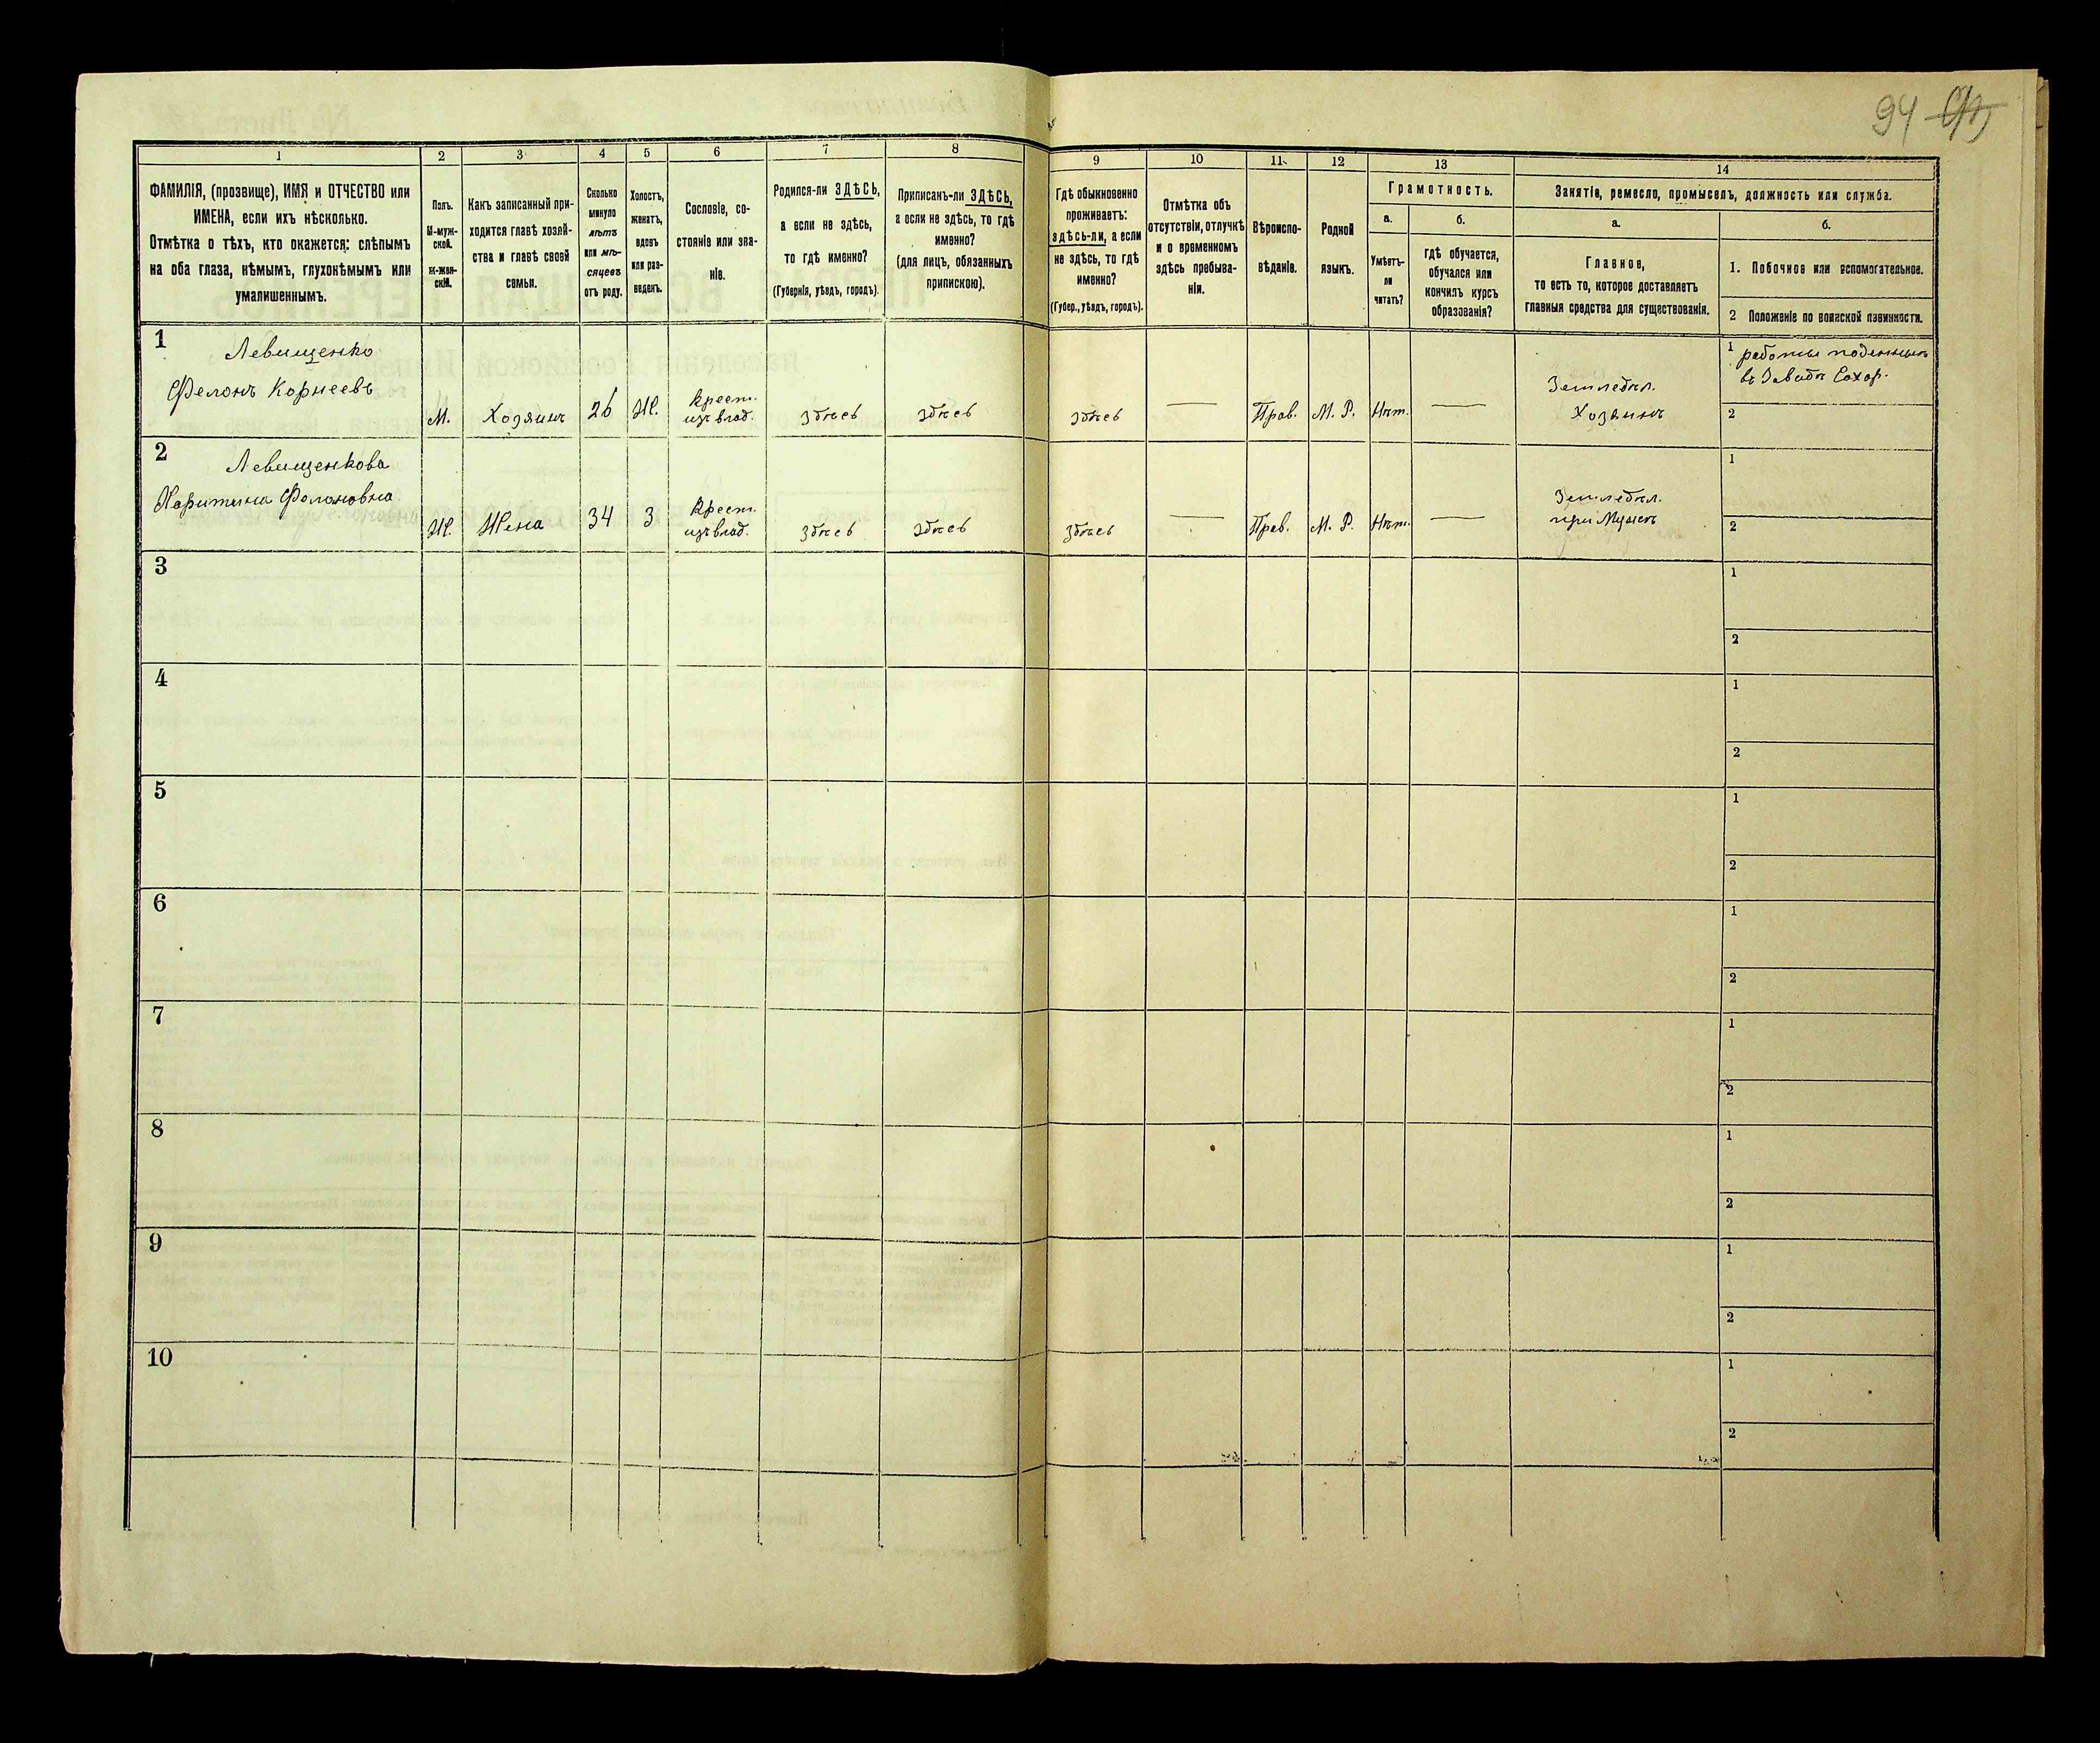 94
1
2
3
4
5
6
7
8
9
10
11
12
13
14
ФАМИЛІЯ, (прозвище), ИМЯ и ОТЧЕСТВО или
ИМЕНА, если ихъ нѣсколько.
Отмѣтка о тѣхъ, кто окажется: слѣпымъ
на оба глаза, нѣмымъ, глухонѣмымъ или
умалишеннымъ.
Полъ.
М-муж-
ской.
Ж-жен-
скій.
Какъ записанный при-
ходится главѣ хозяй-
ства и главѣ своей
семьи.
Сколько
минуло
лѣтъ
или мѣ-
сяцевъ
отъ роду.
Холостъ,
женатъ,
вдовъ
или раз-
веденъ.
Сословіе, со-
стояніе или зва-
ніе.
Родился-ли ЗДѢСЬ,
а если не здѣсь,
то гдѣ именно?
(Губернія, уѣздъ, городъ).
Приписанъ-ли ЗДѢСЬ,
а если не здѣсь, то гдѣ
именно?
(для лицъ, обязанныхъ
припискою).
Гдѣ обыкновенно
проживаетъ:
здѣсь-ли, а если
не здѣсь, то гдѣ
именно?
(Губер., уѣздъ, городъ).
Отмѣтка объ
отсутствіи, отлучкѣ
и о временномъ
здѣсь пребыва-
ніи.
Вѣроиспо-
вѣданіе.
Родной
языкъ.
Грамотность.
а.
Умѣетъ-
ли
читать?
б.
гдѣ обучается,
обучался или
кончилъ курсъ
образованія?
Занятіе, ремесло, промыселъ, должность или служба.
а.
Главное,
то есть то, которое доставляетъ
главныя средства для существованія.
б.
1. Побочное или вспомогательное.
2 Положеніе по воинской повинности.
1
Левищенко
Филонъ Корнеевъ
М.
Хозяинъ
26
Ж.
Крест.
изъ влад.
Здѣсь
Здѣсь
Здѣсь
—
Прав.
М. Р.
Нѣт.
—
Земледѣл.
Хозяинъ
1
в Заводѣ Сахар.
2
2
Левищенкова
Харитина Филоновна
Ж.
Жена
34
З
Крест.
изъ влад.
Здѣсь
Здѣсь
Здѣсь
—
Прав.
М. Р.
Нѣт.
—
Земледѣл.
при Мужѣ
1
2
3
1
2
4
1
2
5
1
2
6
1
2
7
1
2
8
1
2
9
1
2
10
1
2